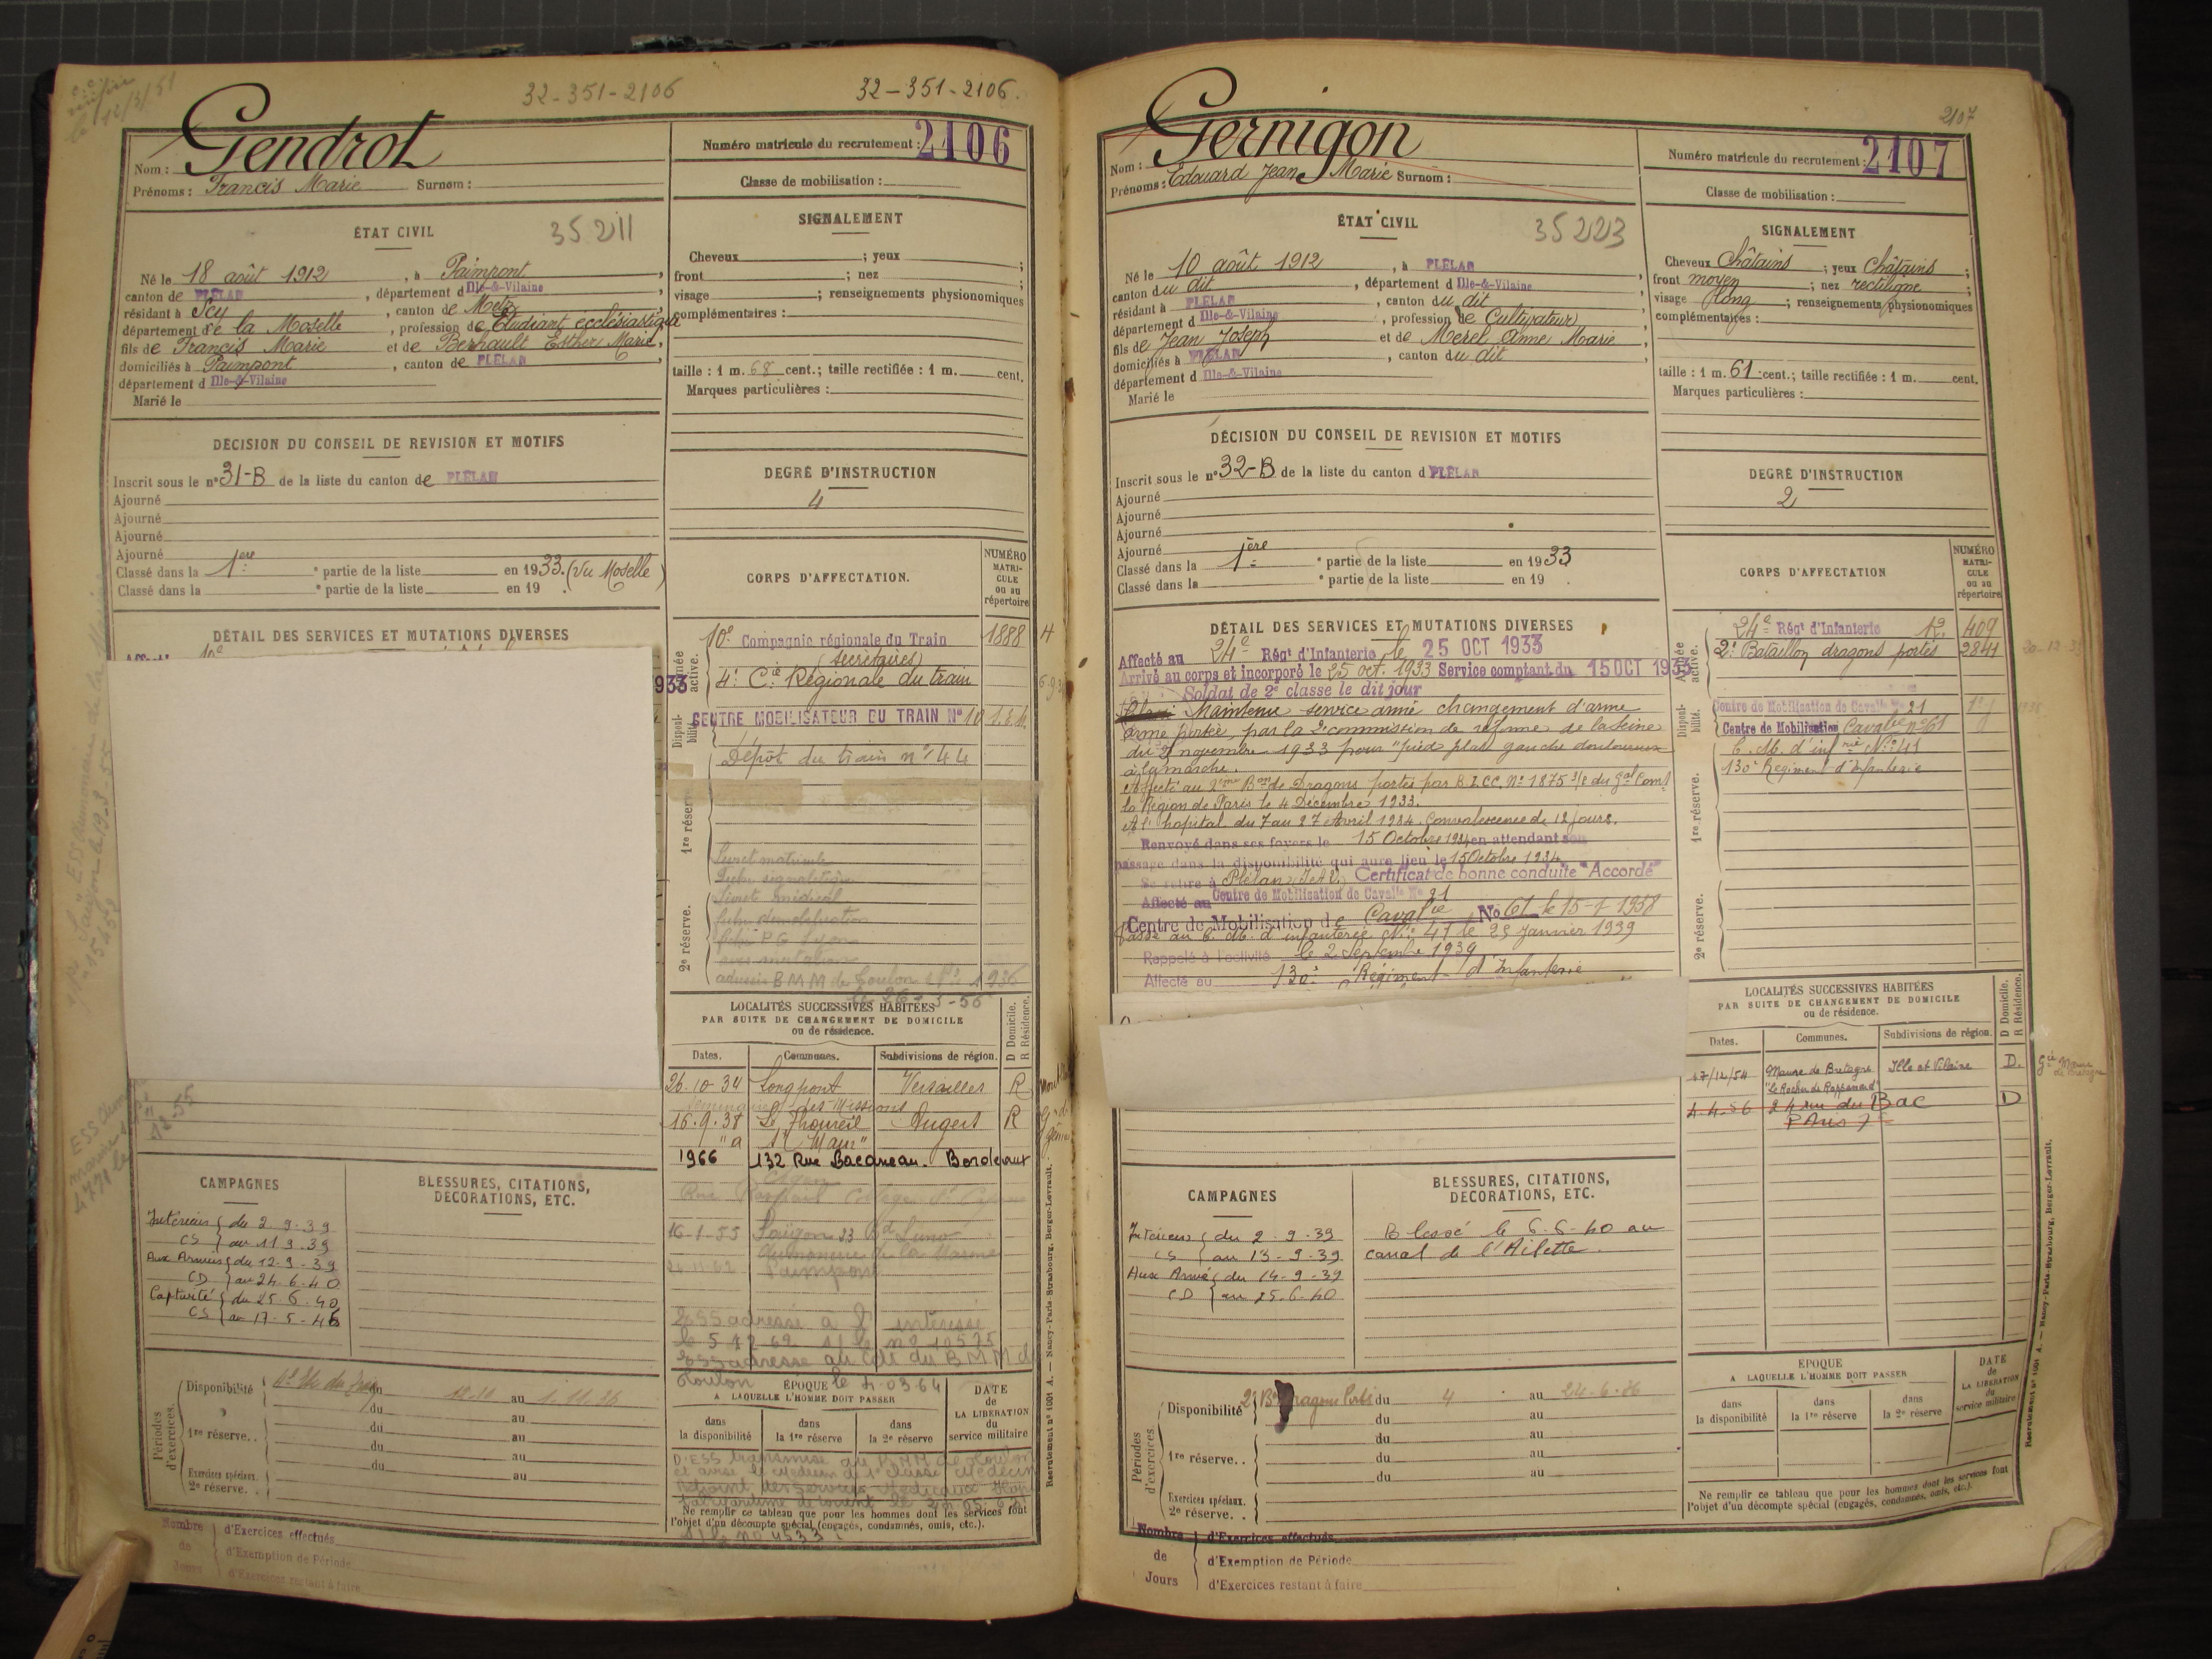 32-351-2106
32-351-2106.
Gendrot
Nom :
Prénoms : Francis Marie Surnom :
Numéro matricule du recrutement : 2106
Classe de mobilisation :
ÉTAT CIVIL 35211
Né le 18 août 1912, à Paimpont,
canton de PLÉLAN, département d Ille-&-Vilaine,
résidant à Scy, canton de Metz,
département de la Moselle, profession de Etudiant ecclésiastique
fils de Francis Marie et de Berhault Esther Marie,
domiciliés à Paimpont, canton de PLÉLAN,
département d Ille-&-Vilaine
Marié le
SIGNALEMENT
Cheveux ; yeux ;
front ; nez ;
visage ; renseignements physionomiques
complémentaires :
taille : 1 m. 68 cent.; taille rectifiée : 1 m. cent.
Marques particulières :
DÉCISION DU CONSEIL DE REVISION ET MOTIFS
Inscrit sous le n° 31-B de la liste du canton de PLÉLAN
Ajourné
Ajourné
Ajourné
Ajourné
Classé dans la 1ère partie de la liste en 1933. (Vu Moselle)
Classé dans la ° partie de la liste en 19 .
DEGRÉ D'INSTRUCTION
4
DÉTAIL DES SERVICES ET MUTATIONS DIVERSES
933
CORPS D'AFFECTATION.
NUMÉRO MATRI-CULE ou au répertoire
Armée active.
10e Compagnie régionale du Train 1888
(Secrétaires)
4e Cie Régionale du train
Disponi-bilité.
CENTRE MOBILISATEUR DU TRAIN N° 10
Dépôt du train n° 44
1re réserve.
Livret matricule
Livret médical
2e réserve.
adressés BMM de Toulon
LOCALITÉS SUCCESSIVES HABITÉES
PAR SUITE DE CHANGEMENT DE DOMICILE
ou de résidence.
D Domicile. R Résidence.
Dates. Communes. Subdivisions de région.
26.10.34 Longpont Versailles R
Séminaire des Missions
16.9.38 Le Thoureil Angers R
"a St Maur"
1966 132 Rue Bacaneau. Bordeaux
16-1-55 Saïgon 33
Aumonerie de la Marine
Paimpont
ESS adressé à l'intéressé
Toulon le 4.03.64
CAMPAGNES
Intérieur du 2.9.39
CS au 11.9.39
Aux Armées du 12.9.39
CD au 24.6.40
Captivité du 25.6.40
CS au 17-5-45
BLESSURES, CITATIONS,
DÉCORATIONS, ETC.
Périodes d'exercices.
Disponibilité du au 1.11.36
du au
1re réserve. . du au
du au
du au
Exercices spéciaux.
2e réserve. .
ÉPOQUE
A LAQUELLE L'HOMME DOIT PASSER
dans la disponibilité
dans la 1re réserve
dans la 2e réserve
DATE de LA LIBÉRATION du service militaire
Ne remplir ce tableau que pour les hommes dont les services font
l'objet d'un décompte spécial (engagés, condamnés, omis, etc.).
Nombre de Jours
d'Exercices effectués
d'Exemption de Période
d'Exercices restant à faire
Recrutement n° 1001 A. — Nancy-Paris-Strasbourg, Berger-Levrault.
2107
Gernigon
Nom :
Prénoms : Edouard Jean Marie Surnom :
Numéro matricule du recrutement : 2107
Classe de mobilisation :
ÉTAT CIVIL 35223
Né le 10 août 1912, à PLÉLAN,
canton du dit, département d Ille-&-Vilaine,
résidant à PLÉLAN, canton du dit,
département d Ille-&-Vilaine, profession de Cultivateur,
fils de Jean Joseph et de Merel Anne Marie,
domiciliés à PLÉLAN, canton du dit
département d Ille-&-Vilaine
Marié le
SIGNALEMENT
Cheveux Châtains ; yeux Châtains ;
front moyen ; nez rectiligne ;
visage long ; renseignements physionomiques
complémentaires :
taille : 1 m. 61 cent.; taille rectifiée : 1 m. cent.
Marques particulières :
DÉCISION DU CONSEIL DE REVISION ET MOTIFS
Inscrit sous le n° 32-B de la liste du canton d PLÉLAN
Ajourné
Ajourné
Ajourné
Ajourné
Classé dans la 1ère partie de la liste en 1933
Classé dans la ° partie de la liste en 19 .
DEGRÉ D'INSTRUCTION
2
DÉTAIL DES SERVICES ET MUTATIONS DIVERSES
Affecté au 24e Régt d'Infanterie le 25 OCT 1933
Arrivé au corps et incorporé le 25 oct. 1933 Service comptant du 15 OCT 1933
Soldat de 2e classe le dit jour
Maintenu service armé changement d'arme
arme portée, par la 2e commission de réforme de la Seine
du 21 novembre 1933 pour "pied plat gauche douloureux
à la marche.
Affecté au 2ème Bon de Dragons portés par B.I.C.C. N° 1875 3/8 du Gal Comt
la Région de Paris le 4 Décembre 1933.
A l'hopital du 7 au 27 Avril 1934. Convalescence de 12 jours.
Renvoyé dans ses foyers le 15 Octobre 1934 en attendant son
passage dans la disponibilité qui aura lieu le 15 Octobre 1934
Se retire à Plélan, I.et V. Certificat de bonne conduite "Accordé"
Affecté au Centre de Mobilisation de Cavalle N° 21
Centre de Mobilisation de Cavalie No 61 le 15-1 1938
Passé au C. M. d'infanterie N° 41 le 25 Janvier 1939
Rappelé à l'activité le 2 Septembre 1939
Affecté au 130e Régiment d'Infanterie
CORPS D'AFFECTATION
NUMÉRO MATRI-CULE ou au répertoire
Armée active.
24e Régt d'Infanterie 409
2e Bataillon dragons portés 2841
Disponi-bilité.
Centre de Mobilisation de Cavalle N° 21
Centre de Mobilisation Cavalie n° 61
C. M. d'infrie N° 41
130e Régiment d'Infanterie
1re réserve.
2e réserve.
LOCALITÉS SUCCESSIVES HABITÉES
PAR SUITE DE CHANGEMENT DE DOMICILE
ou de résidence.
D Domicile. R Résidence.
Dates. Communes. Subdivisions de région.
17/12/54 Maure de Bretagne Ille et Vilaine D.
4.4.56 24 rue du Bac D
PAris 7e
CAMPAGNES
Intérieur du 2-9-39
CS au 13-9-39
Aux Armées du 14-9-39
CD au 25-6-40
BLESSURES, CITATIONS,
DÉCORATIONS, ETC.
Blessé le 6-6-40 au
canal de l'Ailette.
Périodes d'exercices.
Disponibilité 2e Bon Dragons Portés du 4 au 24-6-36
du au
1re réserve. . du au
du au
du au
Exercices spéciaux.
2e réserve. .
ÉPOQUE
A LAQUELLE L'HOMME DOIT PASSER
dans la disponibilité
dans la 1re réserve
dans la 2e réserve
DATE de LA LIBÉRATION du service militaire
Ne remplir ce tableau que pour les hommes dont les services font
l'objet d'un décompte spécial (engagés, condamnés, omis, etc.).
Nombre de Jours
d'Exercices effectués
d'Exemption de Période
d'Exercices restant à faire
Recrutement n° 1001 A. — Nancy-Paris-Strasbourg, Berger-Levrault.